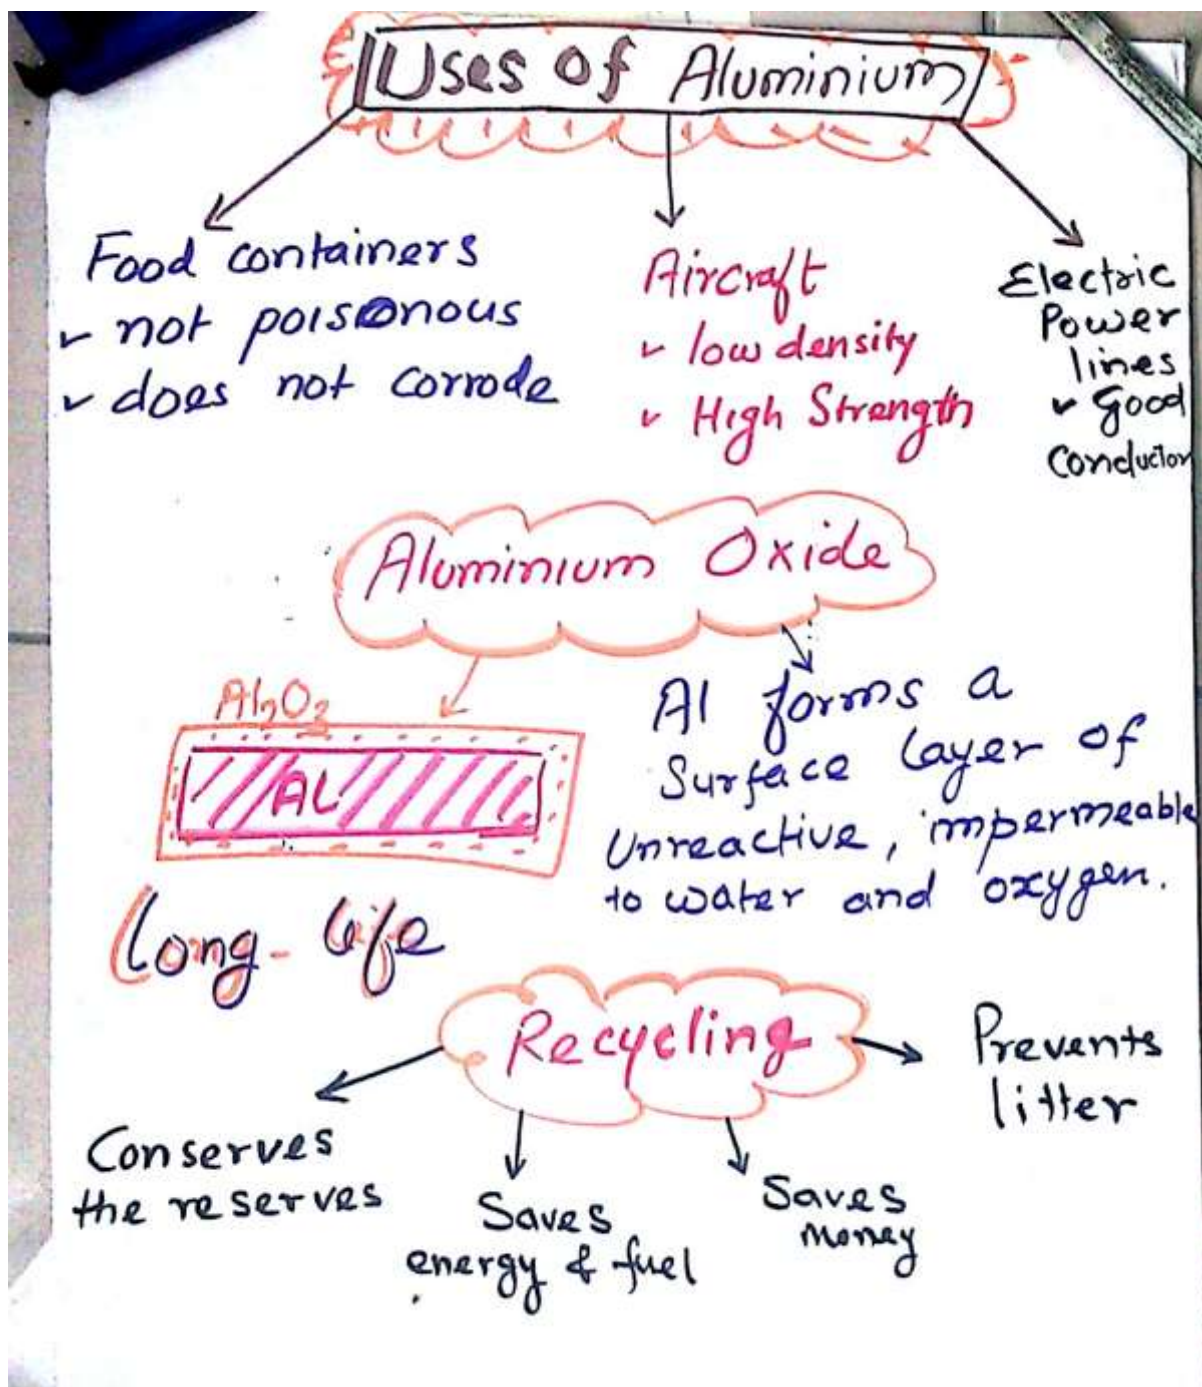 Uses of Aluminium
Food containers
✓ not poisonous
✓ does not corrode
Aircraft
✓ low density
✓ High Strength
Electric
Power
lines
✓ Good
Conductor
Aluminium Oxide
Al₂O₃
AL
Long-life
Al forms a
Surface layer of
Unreactive, impermeable
to water and oxygen.
Recycling
Conserves
the reserves
Saves
energy & fuel
Saves
money
Prevents
litter